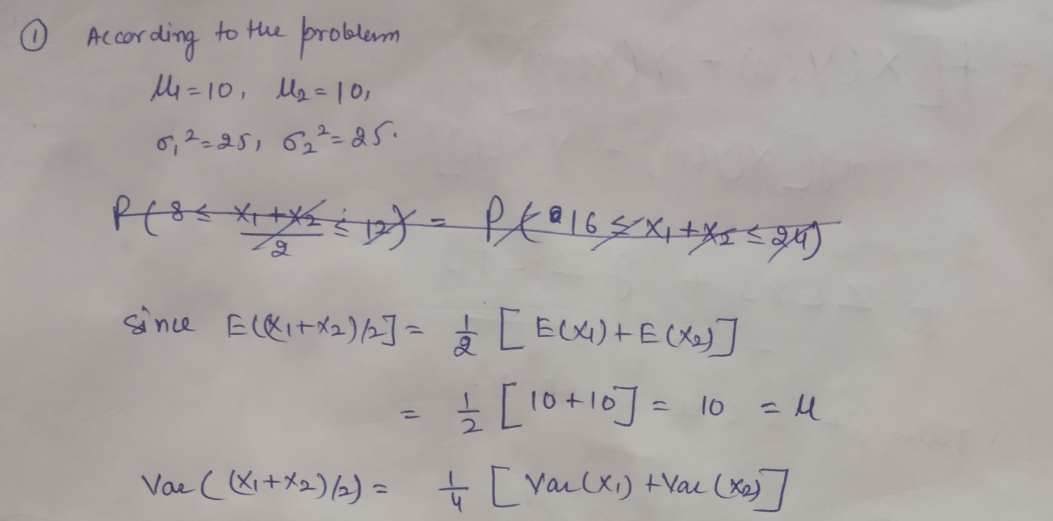 ① According to the problem
μ₁=10, μ₂=10,
σ₁²=25, σ₂²=25.
P(8≤ (X₁+X₂)/2 ≤ 12) = P(16 ≤ X₁+X₂ ≤ 24)
Since E((X₁+X₂)/2] = 1/2 [E(X₁)+E(X₂)]
= 1/2 [10+10] = 10 = μ
Var((X₁+X₂)/2) = 1/4 [Var(X₁)+Var(X₂)]